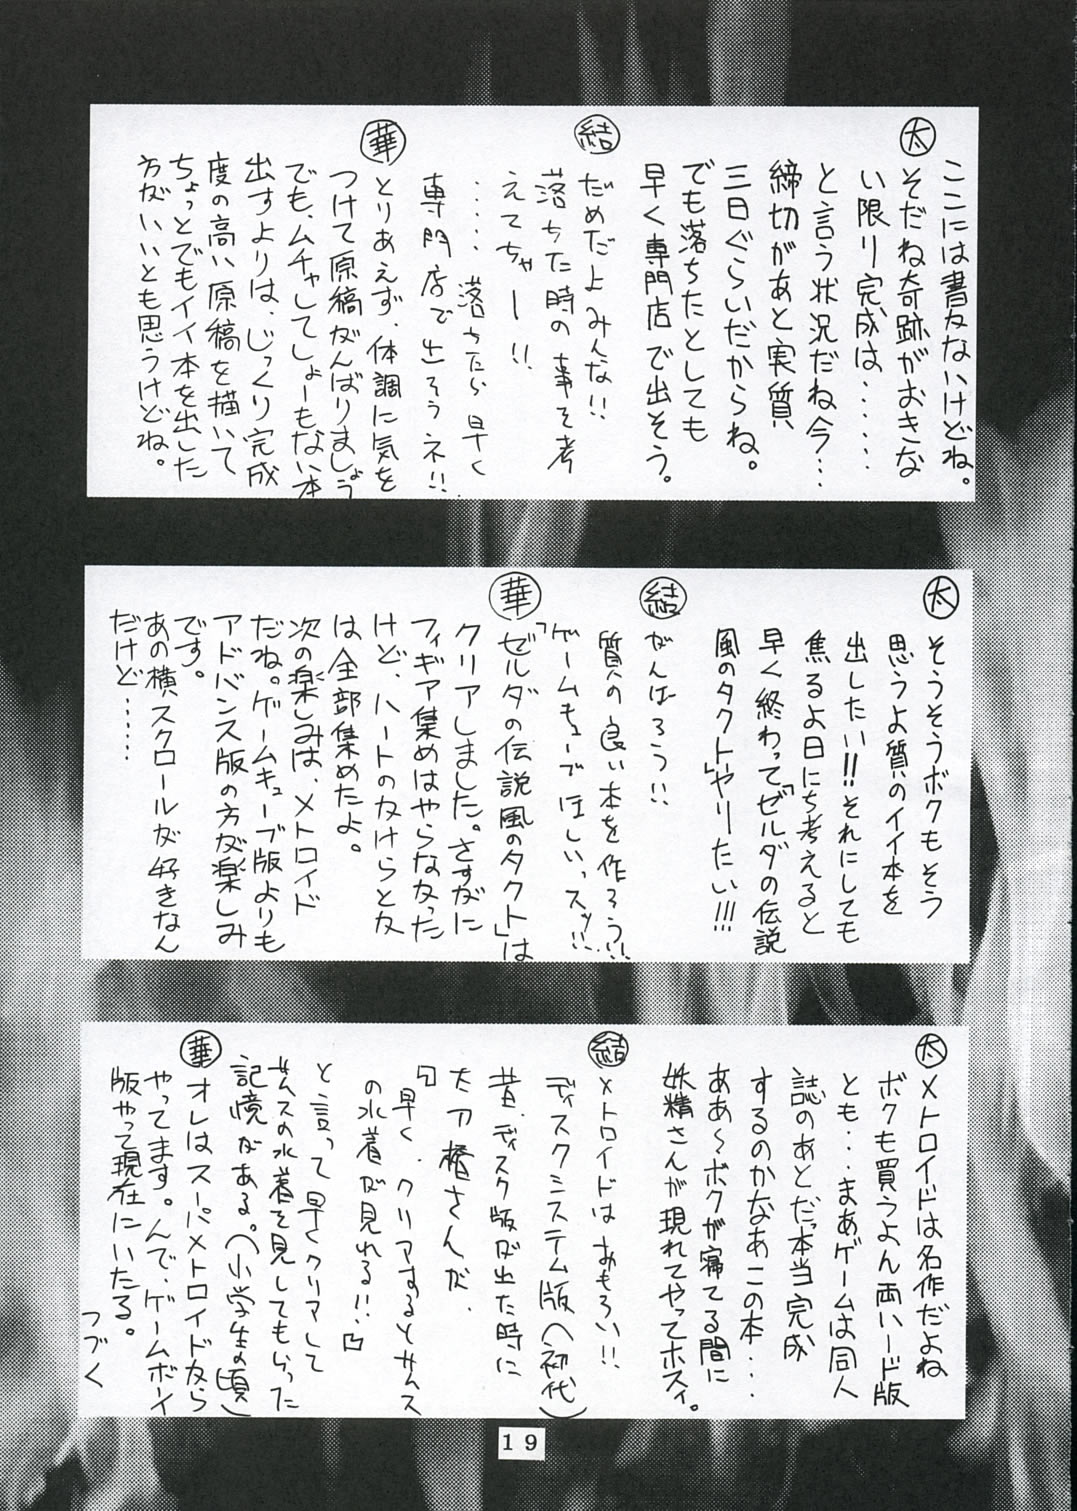 ここには書かないけどね。
太
そだね奇跡がおきな
い限り完成は‥‥‥
と言う状況だね今‥‥
締切があと実質
三日ぐらいだからね。
でも落ちたとしても
早く専門店で出そう。
結
だめだよみんな!!
落ちた時の事を考
えてちゃー!!
‥‥落ちたら早く
専門店で出そうネ!!
華
とりあえず、体調に気を
つけて原稿がんばりましょう
でも、ムチャしてしょーもない本
出すよりは、じっくり完成
度の高い原稿を描いて
ちょっとでもイイ本を出した
方がいいとも思うけどね。
太
そうそうボクもそう
思うよ質のイイ本を
出したい!!それにしても
焦るよ日にち考えると
早く終わって「ゼルダの伝説
風のタクト」やりたい!!!
結
がんばろう!!
質の良い本を作ろう!!
「ゲームキューブでほしいっスッ!!
華
「ゼルダの伝説風のタクト」は
クリアしました。さすがに
フィギア集めはやらなかった
けど、ハートのかけらとか
は全部集めたよ。
次の楽しみは、メトロイド
だね。ゲームキューブ版よりも
アドバンス版の方が楽しみ
です。
あの横スクロールが好きなん
だけど‥‥‥
太
メトロイドは名作だよね
ボクも買うよん両ハード版
とも‥‥まあゲームは同人
誌のあとだっ本当完成
するのかなあこの本‥‥
ああ〜ボクが寝てる間に
妖精さんが現れてやってホスィ。
結
メトロイドはおもろい!!
ディスクシステム版(初代)
昔、ディスク版が出た時に
太刀橋さんが、
「早く、クリアするとサムス
の水着が見れる!!」
と言って早くクリアして
サムスの水着を見してもらった
記憶がある。(小学生の頃)
華
オレはスーパーメトロイドから
やってます。んで、ゲームボーイ
版やって現在にいたる。
つづく
19